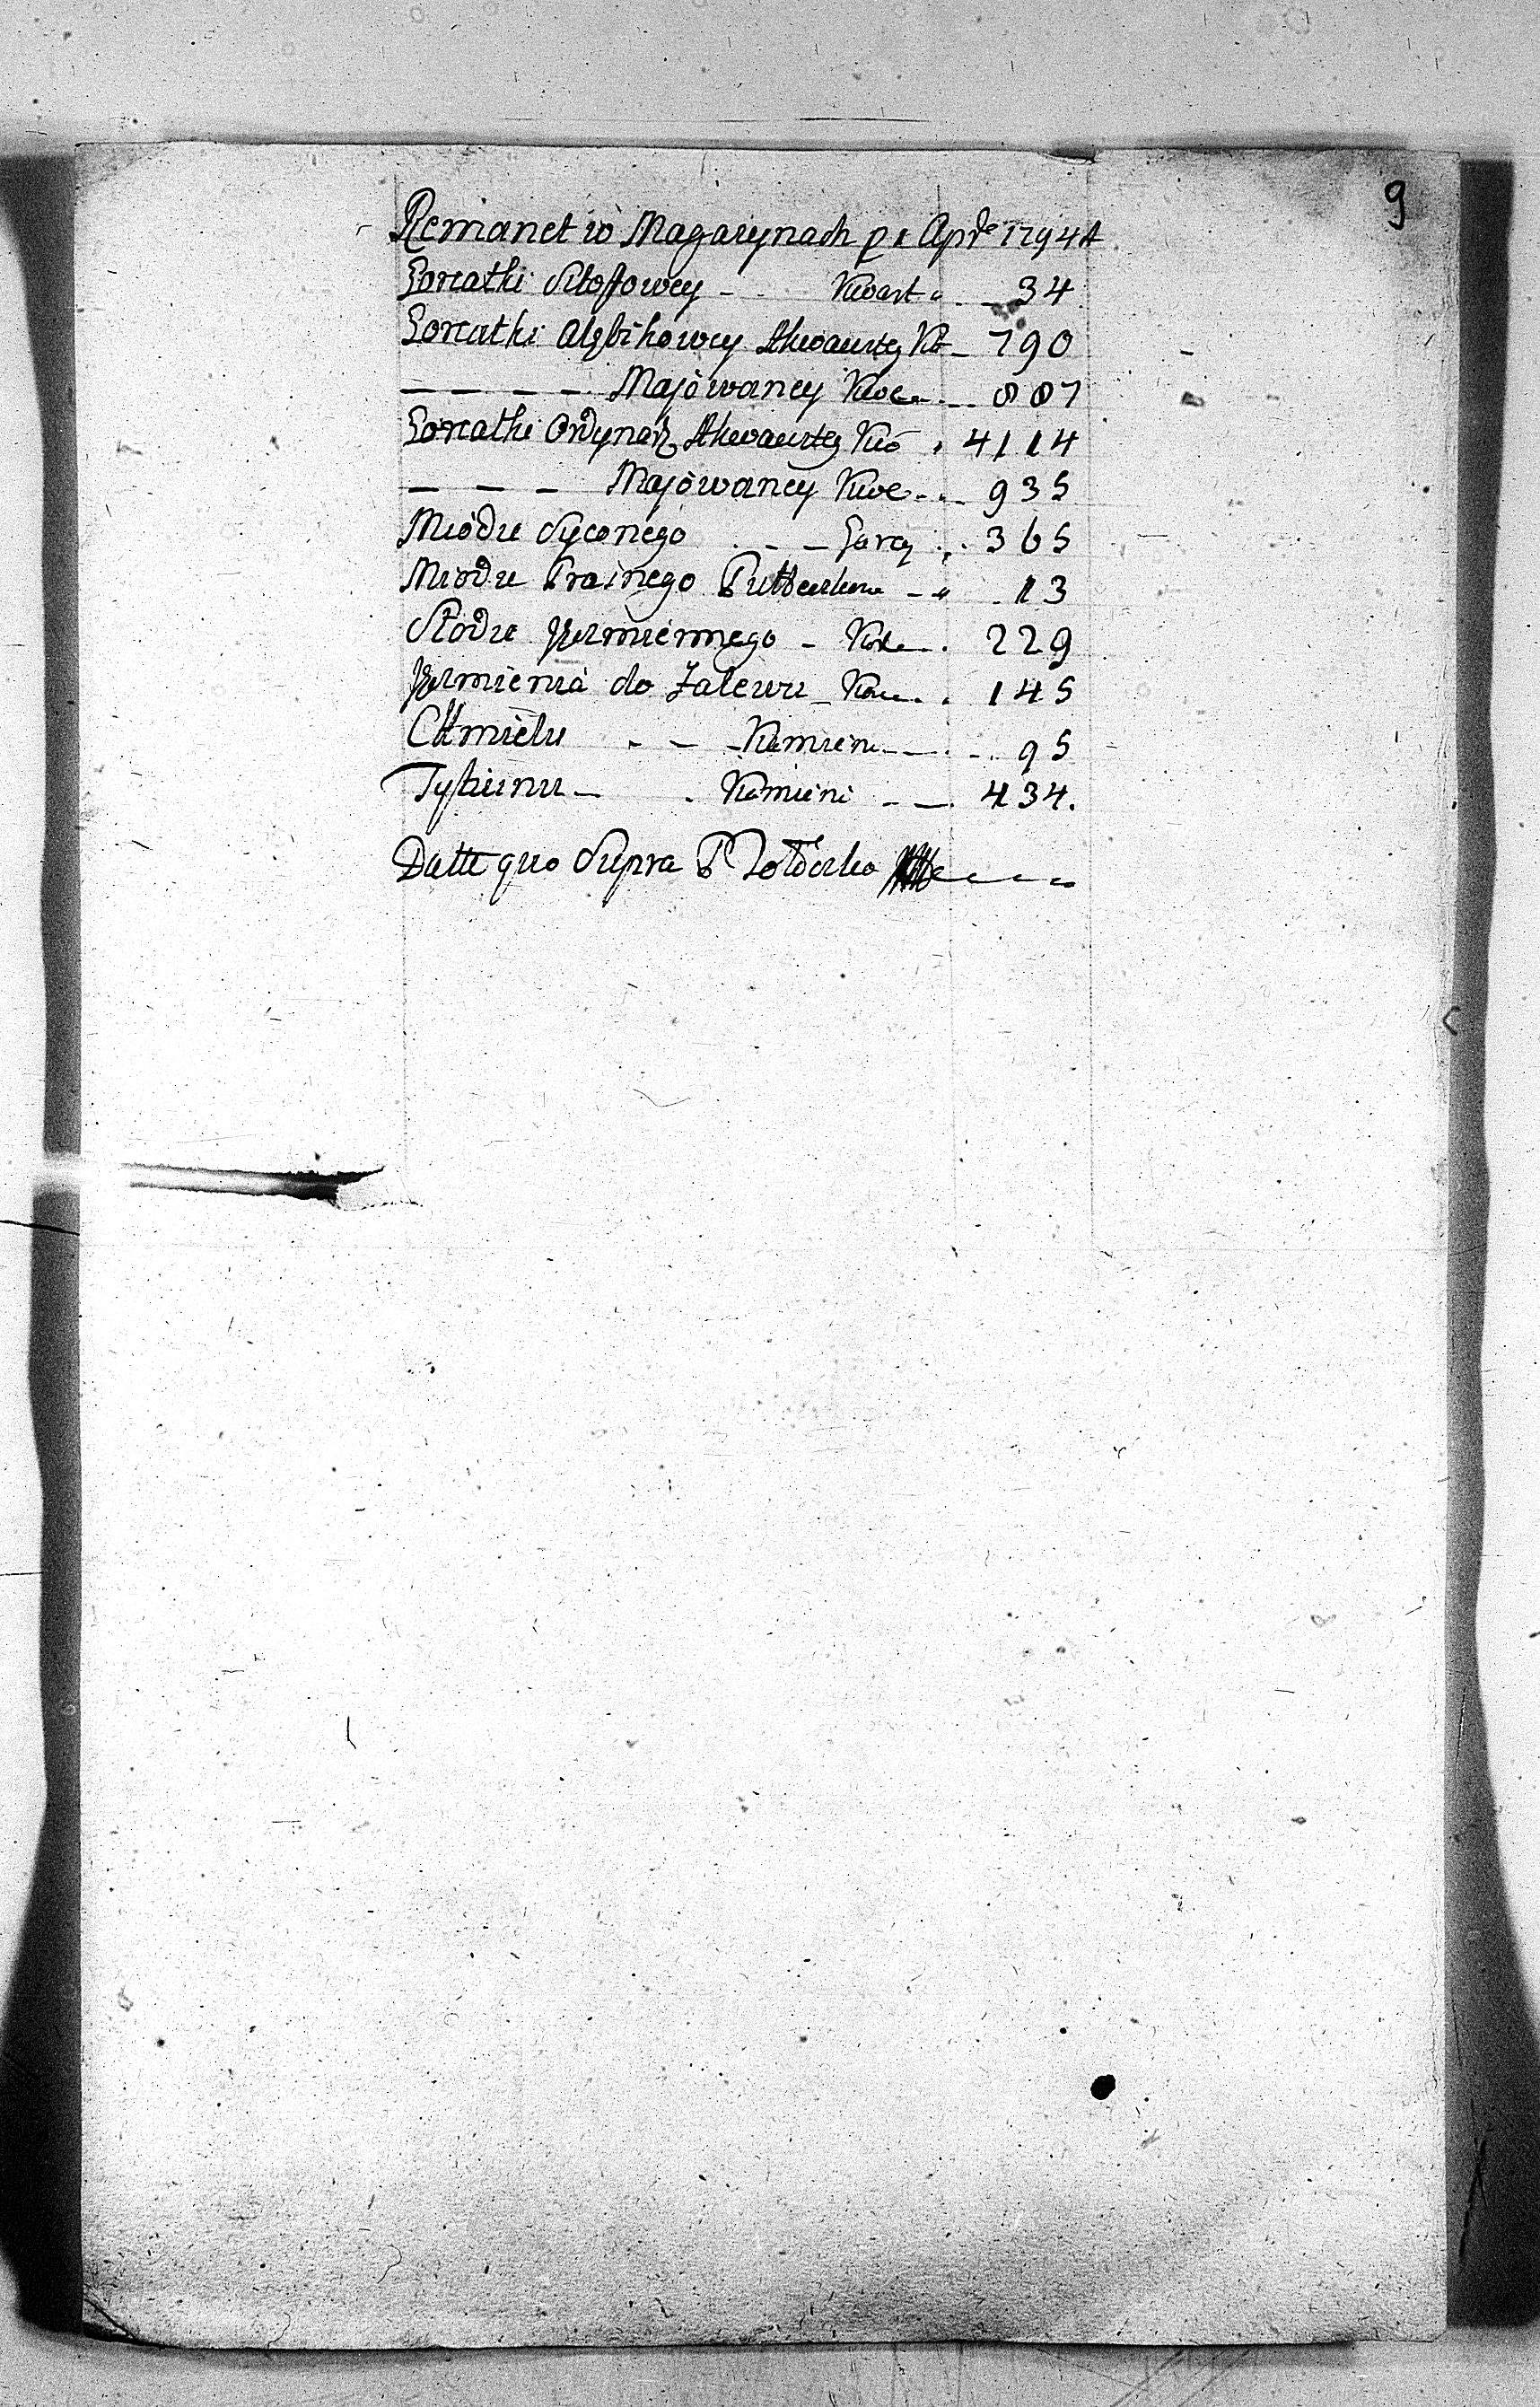 9
Remanet w Magazynach p 1 Apr 1794
Gorzałki Kwart 34
Gorzałki Alębikowey Kw 790
Majowaney Kw 887
Gorzałki Ordynar Kw 4114
Majowaney Kw 935
Miodu Syconego Garcy 365
Miodu Praśnego 13
Słodu Jęmiennego 229
Jęmienia do Zalewu 145
Chmielu Kamieni 95
Tytuniu Kamieni 434.
Datt quo Supra